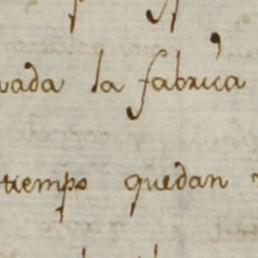 vada la fabrica
tiempo quedan